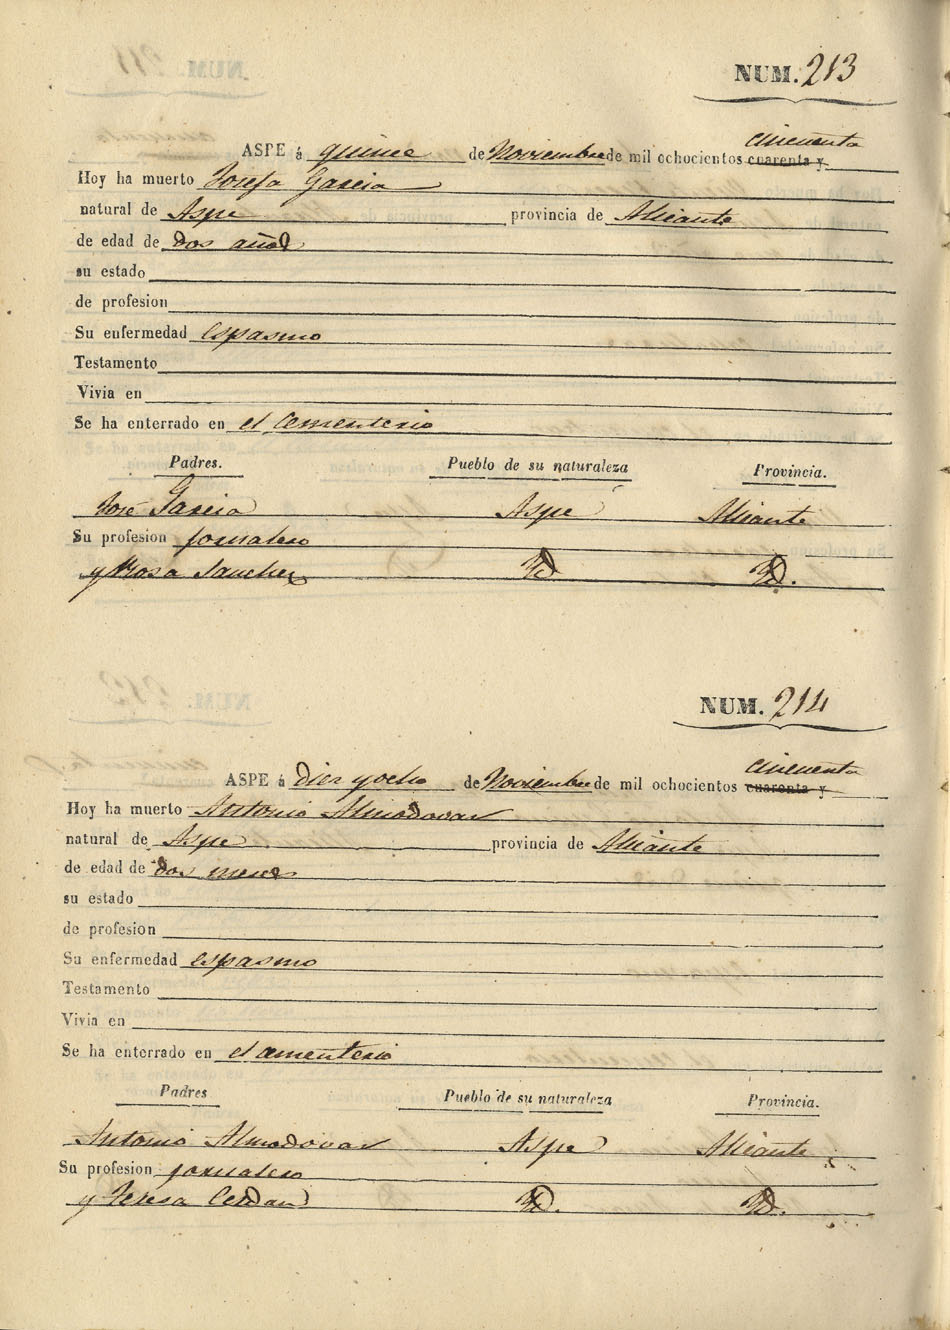 NUM. 213
cincuenta
ASPE á quince de Noviembre de mil ochocientos cuarenta y
Hoy ha muerto Josefa Garcia
natural de Aspe provincia de Alicante
de edad de dos años
su estado
de profesion
Su enfermedad espasmo
Testamento
Vivia en
Se ha enterrado en el cementerio
Padres. Pueblo de su naturaleza Provincia.
José Garcia Aspe Alicante
Su profesion jornalero
y Rosa Sanchez Yd Yd.
NUM. 214
cincuenta
ASPE á diez y ocho de Noviembre de mil ochocientos cuarenta y
Hoy ha muerto Antonio Almodovar
natural de Aspe provincia de Alicante
de edad de dos meses
su estado
de profesion
Su enfermedad espasmo
Testamento
Vivia en
Se ha enterrado en el cementerio
Padres Pueblo de su naturaleza Provincia.
Antonio Almodovar Aspe Alicante
Su profesion jornalero
y Teresa Cerdan Yd. Yd.